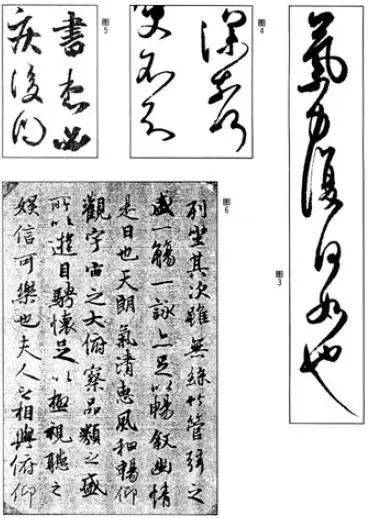 图3
氣力復何如也
图4
深
不
图5
書想必
疾復
图6
列坐其次雖無絲竹管弦之
盛一觴一詠亦足以暢叙幽情
是日也天朗氣清惠風和暢仰
觀宇宙之大俯察品類之盛
所以遊目騁懷足以極視聽之
娛信可樂也夫人之相與俯仰